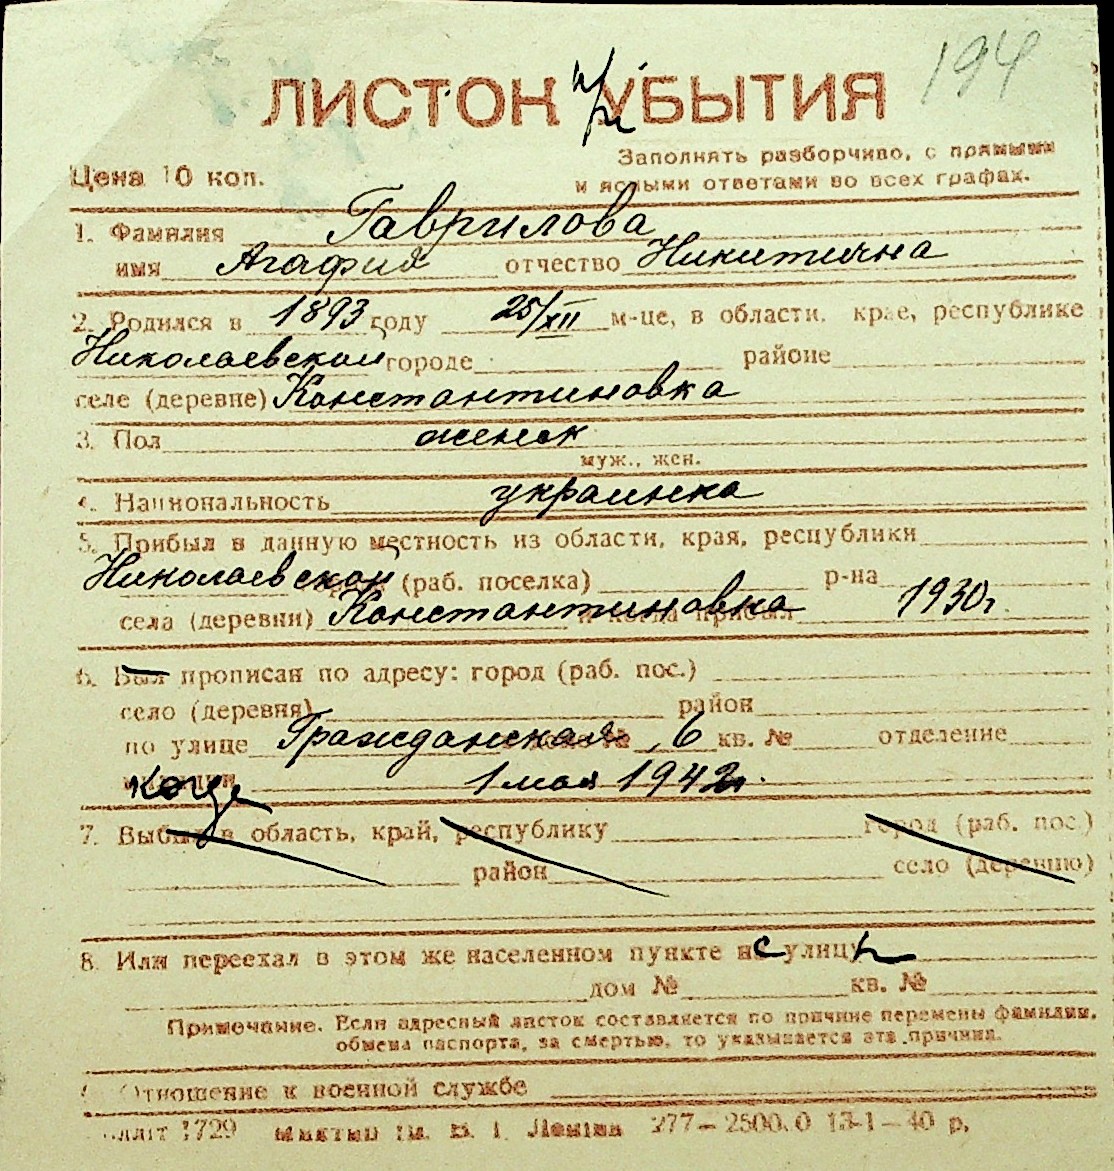 194
ЛИСТОК УБЫТИЯ
Заполнять разборчиво, с прямыми
Цена 10 коп.
и ясными ответами во всех графах.
1. Фамилия Гаврилова
имя Агафия отчество Никитична
2. Родился в 1893 году 25/XII м-це, в области, крае, республике
Николаевской городе районе
селе (деревне) Константиновка
3. Пол женск
муж., жен.
4. Национальность украинка
5. Прибыл в данную местность из области, края, республики
Николаевской (раб. поселка) р-на
села (деревни) Константиновка и когда прибыл 1930г.
6. Был прописан по адресу: город (раб. пос.)
село (деревня) район
по улице Гражданская 6 кв. № отделение
милиции 1 мая 1942г.
7. Выбыл в область, край, республику город (раб. пос.)
район село (деревню)
8. Или переехал в этом же населенном пункте с улицы
дом № кв. №
Примечание. Если адресный листок составляется по причине перемены фамилии,
обмена паспорта, за смертью, то указывается эта причина.
Отношение к военной службе
1729 277—2500.0 13-1—40 р.